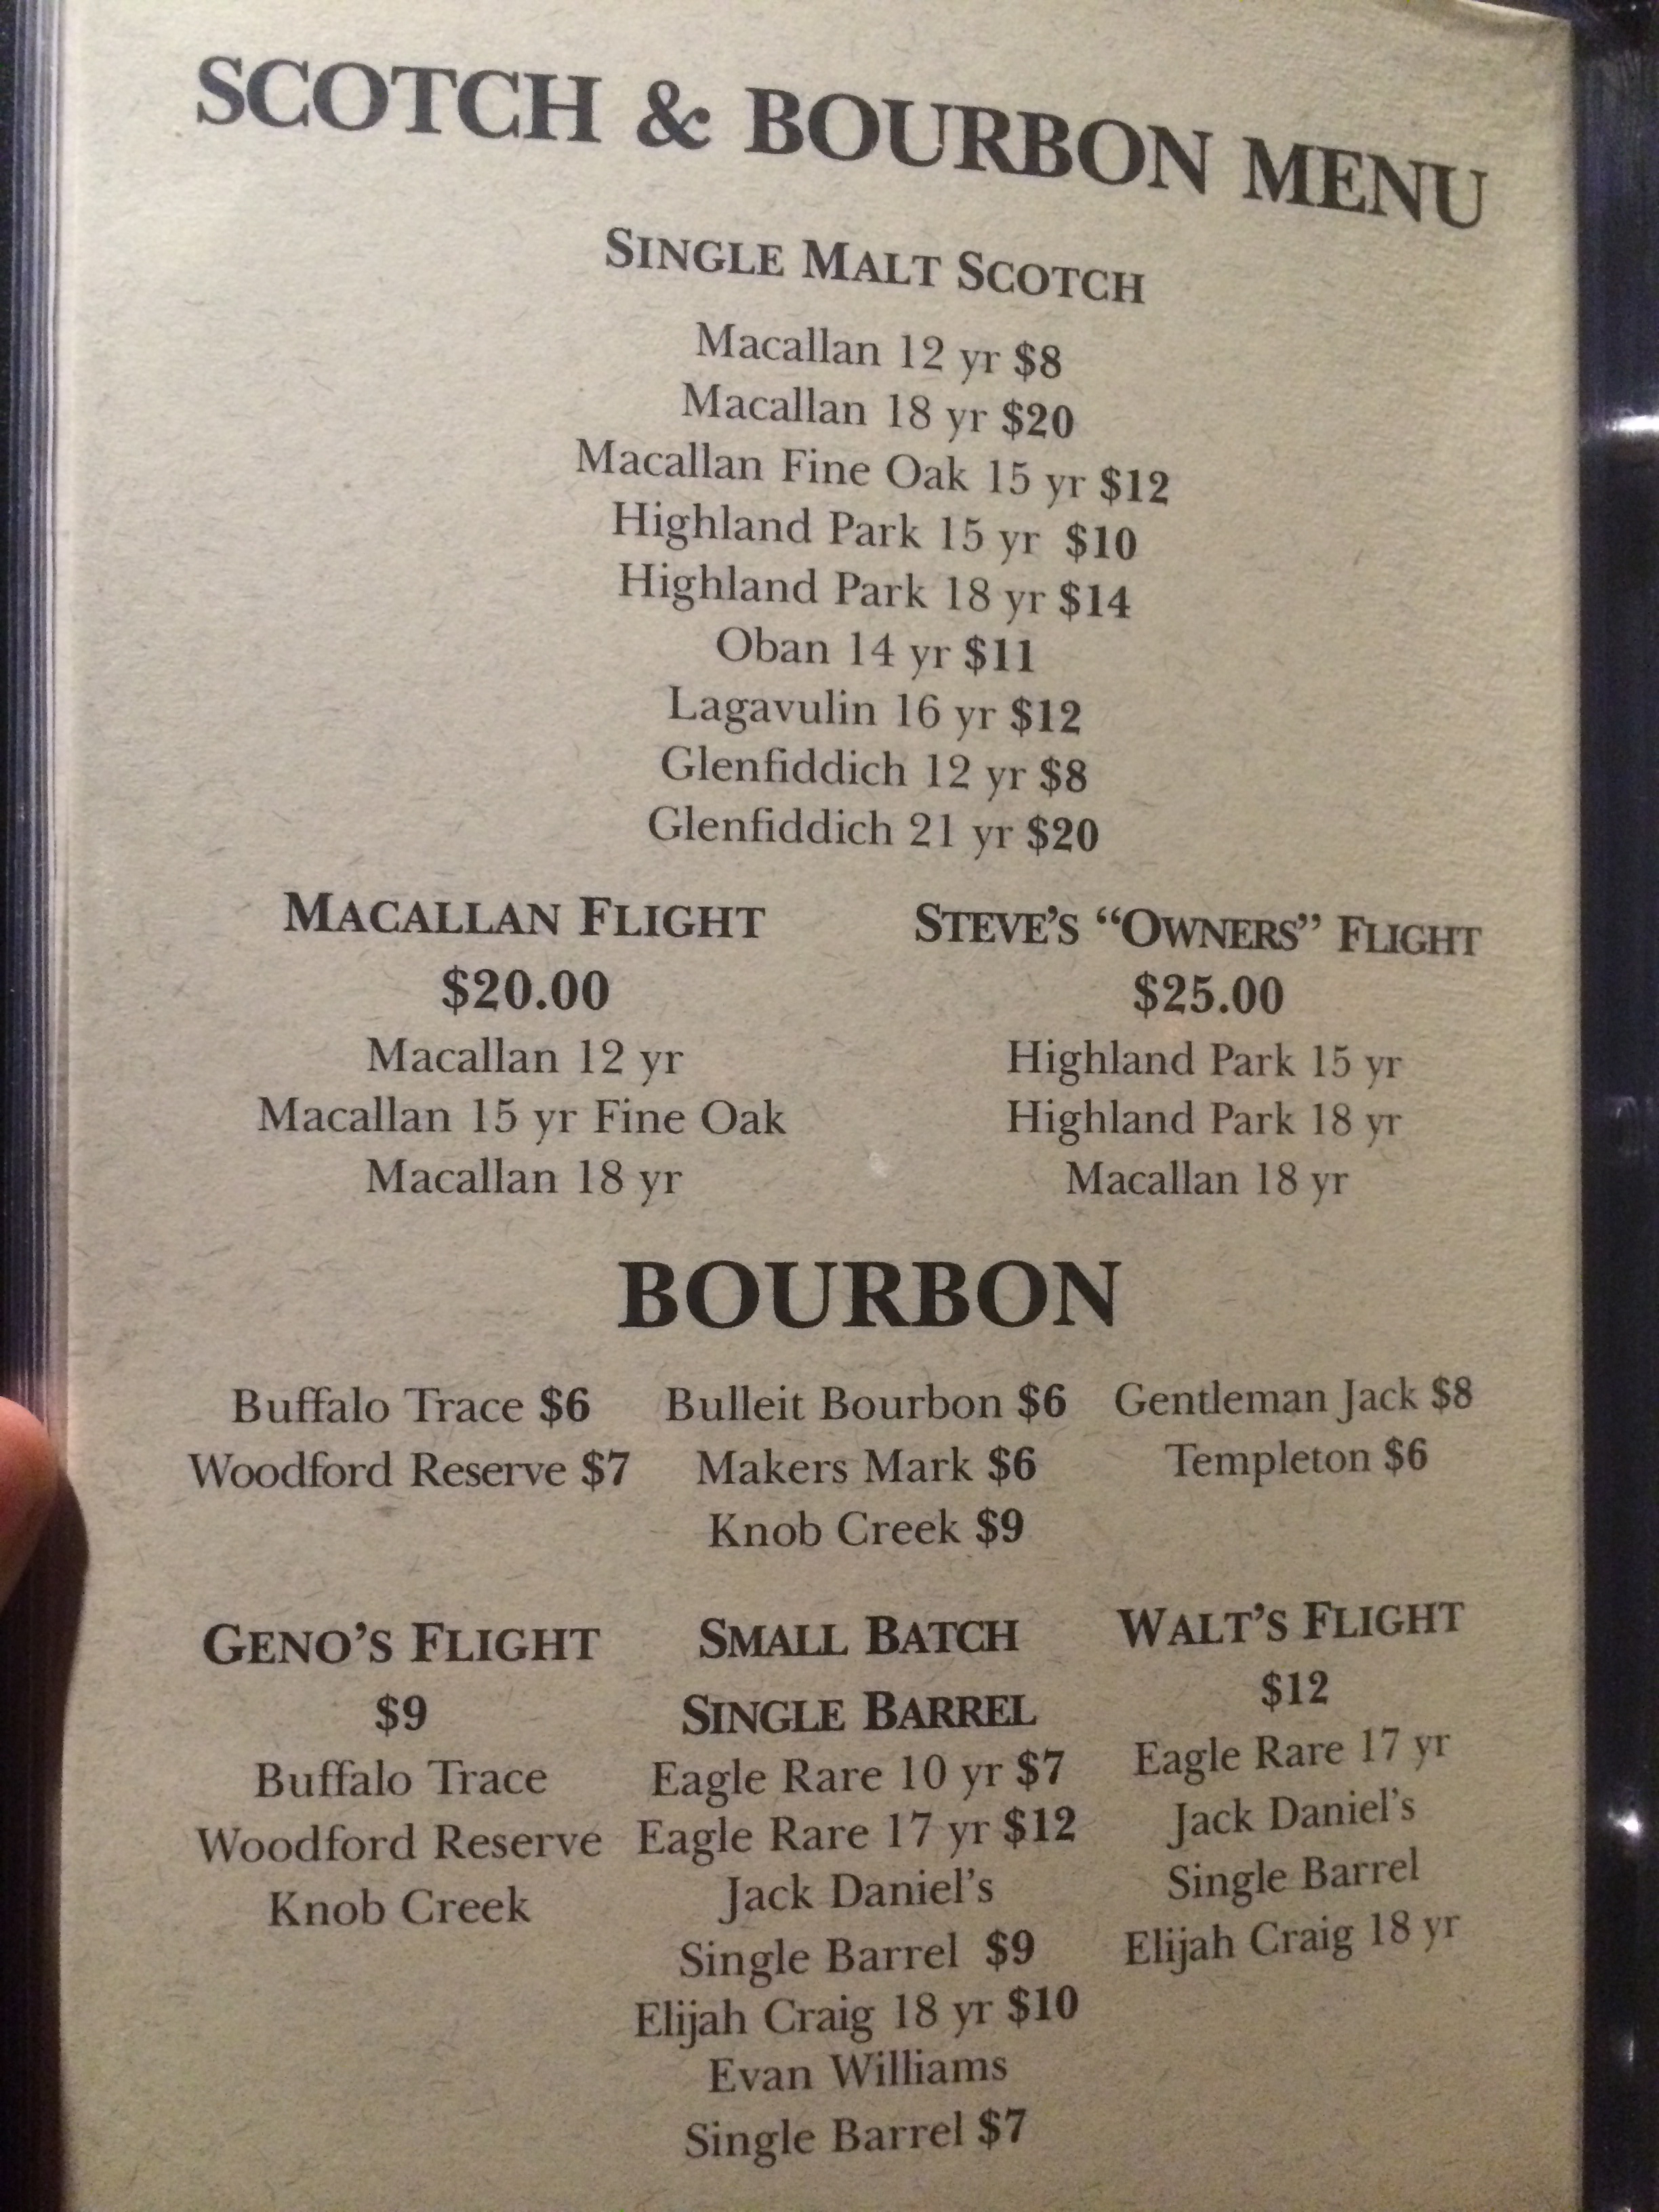 SCOTCH & BOURBON MENU
SINGLE MALT SCOTCH
Macallan 12 yr $8
Macallan 18 yr $20
Macallan Fine Oak 15 yr $12
Highland Park 15 yr $10
Highland Park 18 yr $14
Oban 14 yr $11
Lagavulin 16 yr $12
Glenfiddich 12 yr $8
Glenfiddich 21 yr $20
MACALLAN FLIGHT
$20.00
Macallan 12 yr
Macallan 15 yr Fine Oak
Macallan 18 yr
STEVE'S “OWNERS” FLIGHT
$25.00
Highland Park 15 yr
Highland Park 18 yr
Macallan 18 yr
BOURBON
Buffalo Trace $6
Woodford Reserve $7
Bulleit Bourbon $6
Makers Mark $6
Knob Creek $9
Gentleman Jack $8
Templeton $6
GENO'S FLIGHT
$9
Buffalo Trace
Woodford Reserve
Knob Creek
SMALL BATCH
SINGLE BARREL
Eagle Rare 10 yr $7
Eagle Rare 17 yr $12
Jack Daniel's
Single Barrel $9
Elijah Craig 18 yr $10
Evan Williams
Single Barrel $7
WALT'S FLIGHT
$12
Eagle Rare 17 yr
Jack Daniel's
Single Barrel
Elijah Craig 18 yr